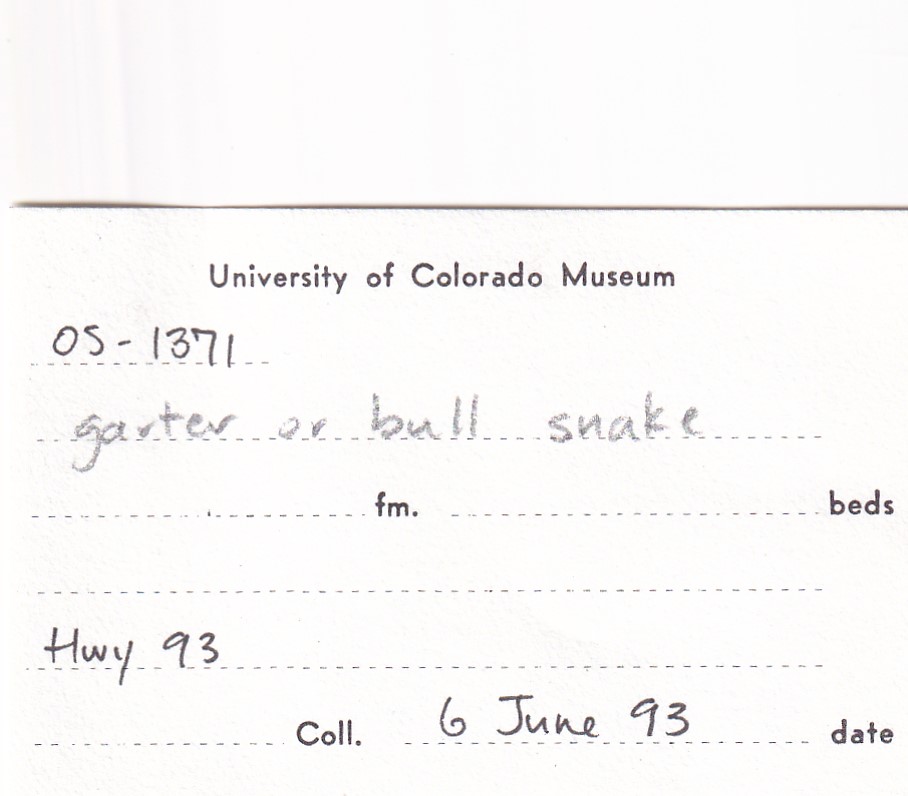 University of Colorado Museum
OS-1371
garter or bull snake
fm. beds
Hwy 93
Coll. 6 June 93 date